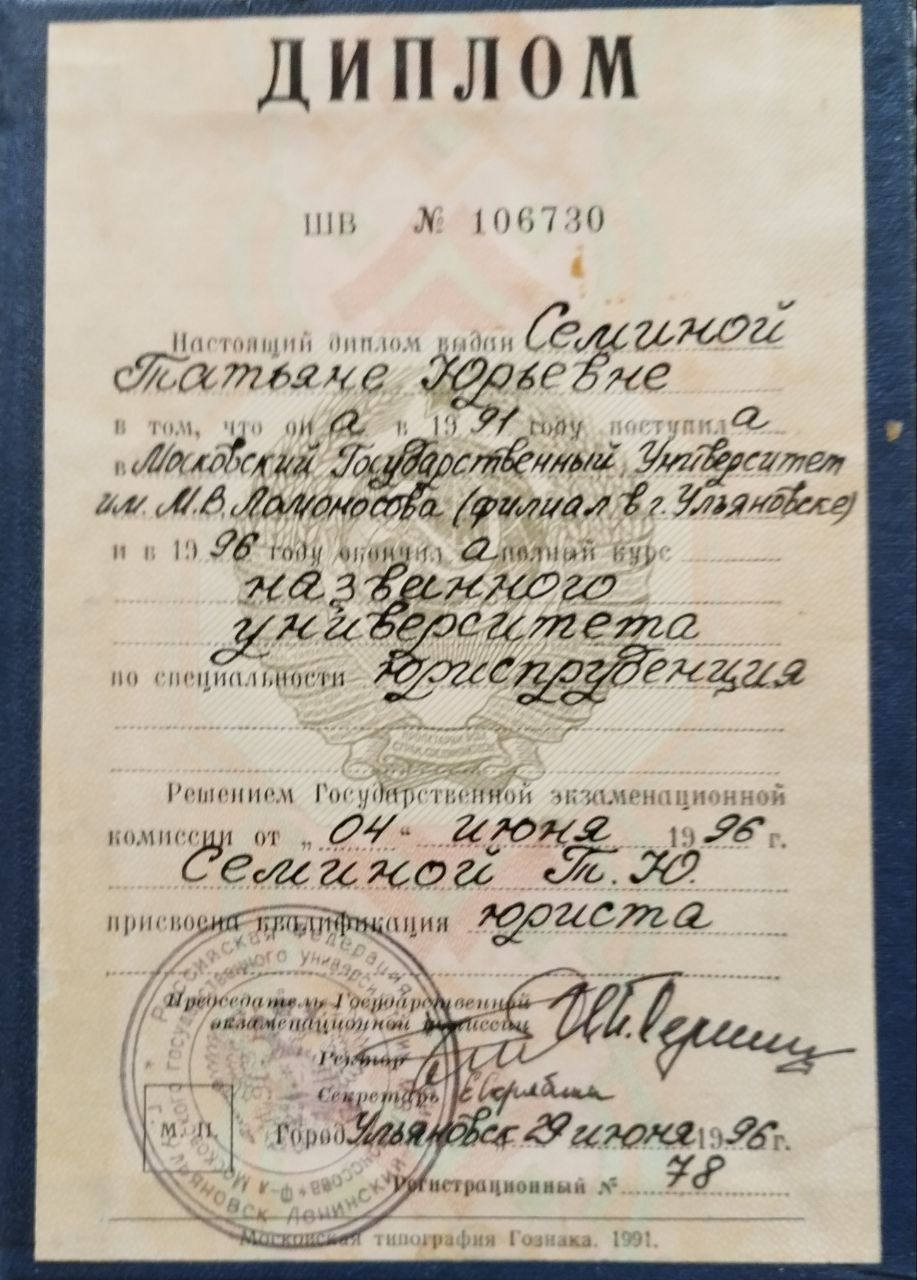 ДИПЛОМ
ШВ № 106730
Настоящий диплом выдан Семиной
Татьяне Юрьевне
в том, что он а в 19 91 году поступил а
в Московский Государственный Университет
им. М.В. Ломоносова (филиал в г. Ульяновске)
и в 19 96 году окончил а полный курс
названного
университета
по специальности юриспруденция
Решением Государственной экзаменационной
комиссии от „ 04 “ июня 19 96 г.
Семиной Т. Ю.
присвоена квалификация юриста
Председатель Государственной
экзаменационной комиссии
Ректор
Секретарь
М. П.
Город Ульяновск 29 июня 19 96 г.
Регистрационный № 78
Московская типография Гознака. 1991.
Российская Федерация
Ульяновск Ленинский